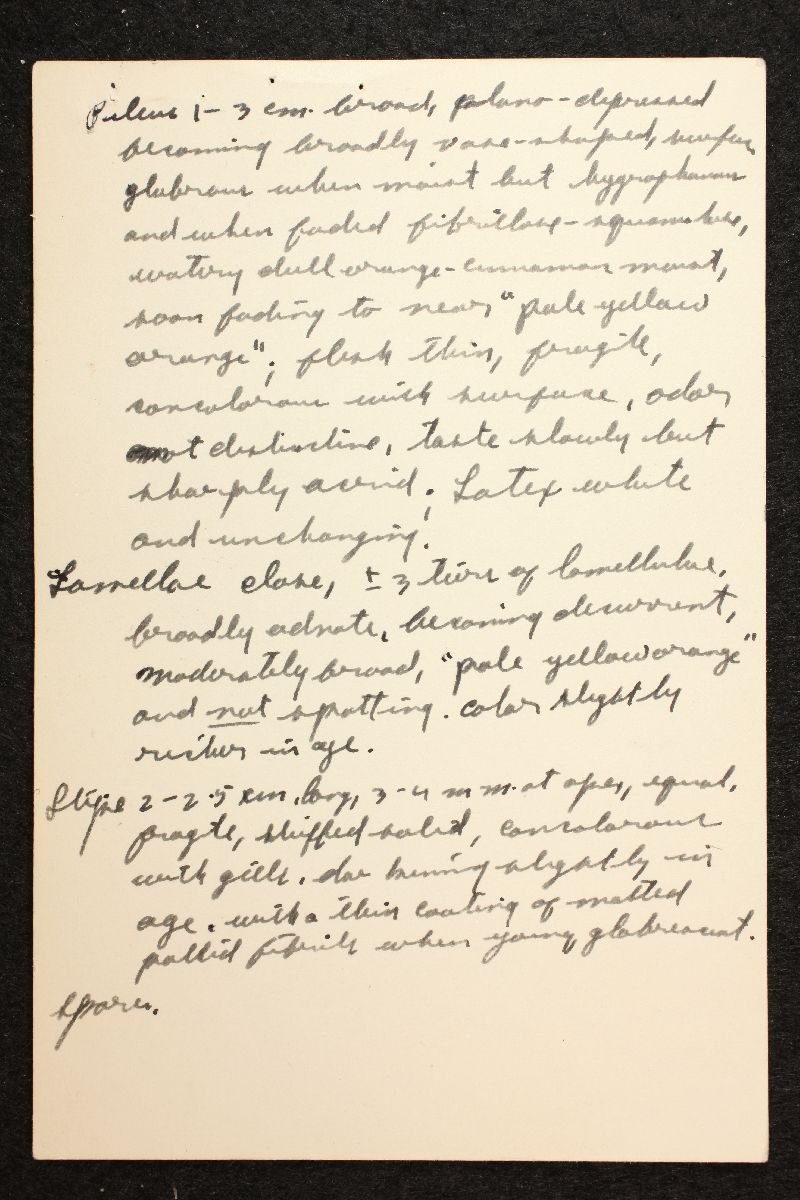 Pileus 1-3 cm. broad, plano-depressed
becoming broadly vase-shaped, surface
glabrous when moist but hygrophanous
and when faded fibrillose-squamulose,
watery dull orange-cinnamon moist,
soon fading to near "pale yellow
orange"; flesh thin, fragile,
concolorous with surface, odor
not distinctive, taste slowly but
sharply acrid; Latex white
and unchanging.
Lamellae close, ± 3 tiers of lamellulae,
broadly adnate, becoming decurrent,
moderately broad, "pale yellow orange"
and not spotting. color slightly
richer in age.
Stipe 2-2.5 cm. long, 3-4 mm. at apex, equal,
fragile, stuffed solid, concolorous
with gills. darkening slightly in
age. with a thin coating of matted
pallid fibrils when young, glabrescent.
Spores.